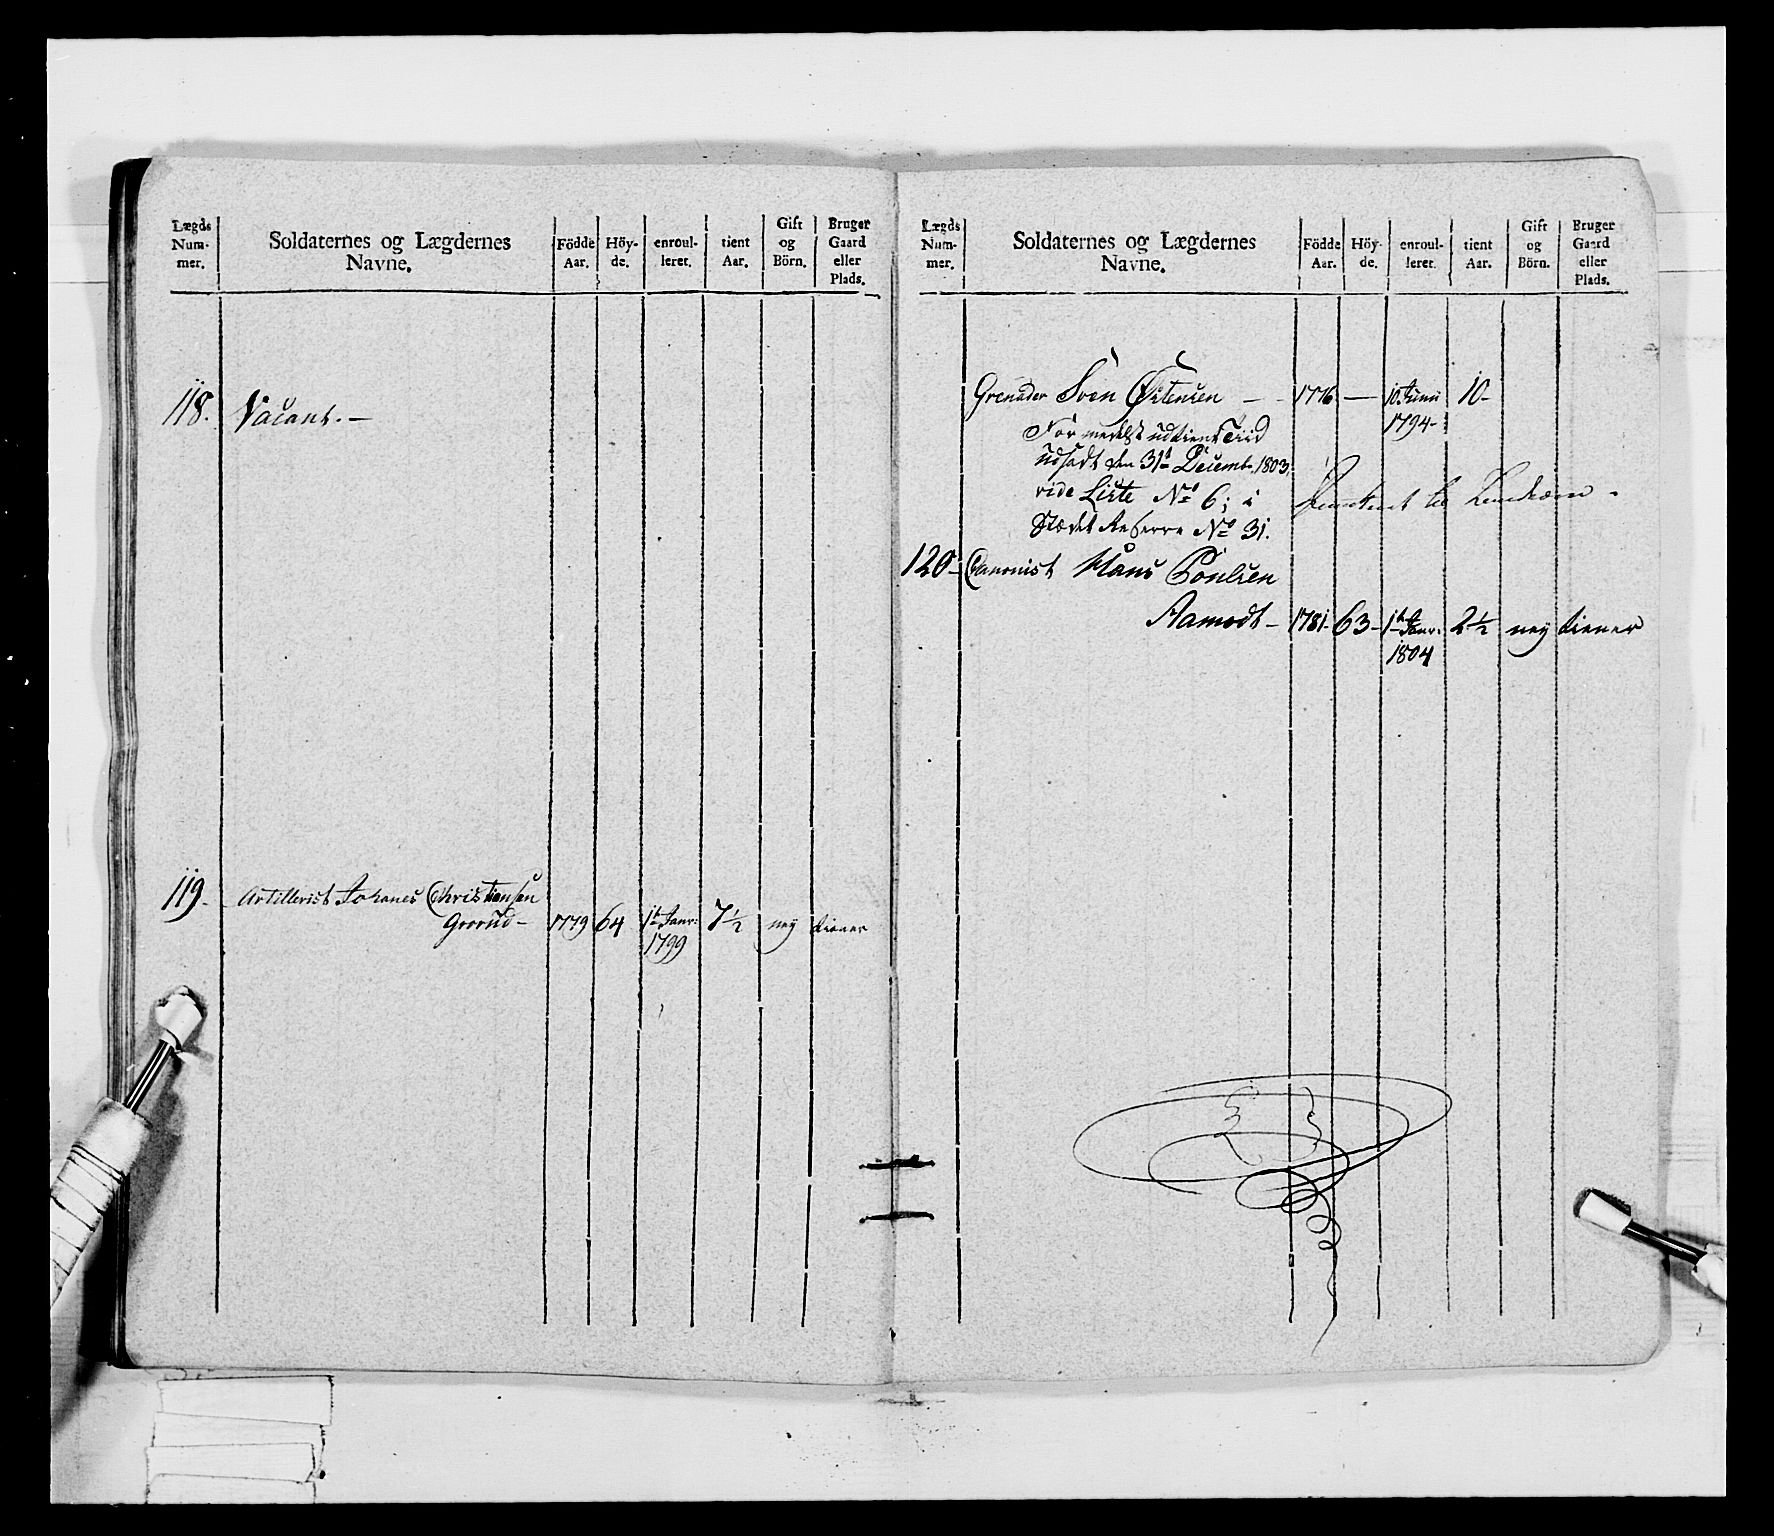 Lægds Num- mer.
Soldaternes og Lægdernes Navne.
Födde Aar.
Höy- de.
enroul- leret.
tient Aar.
Gift og Börn.
Bruger Gaard eller Plads.
118. Vacant. —
119. Artillerist Johanes Christiansen
Grorud - 1779 64 1te Janr: 7½ ney tiener
1799
Lægds Num- mer.
Soldaternes og Lægdernes Navne.
Födde Aar.
Höy- de.
enroul- leret.
tient Aar.
Gift og Börn.
Bruger Gaard eller Plads.
Grenader Sven Østensen — 1776 — 10 Junii 10-
1794-
Formedelst udtient Tiid
udsadt den 31te Decemb. 1803,
vide Liste No 6; i
Stædet Reserve No 31.
120- Canonist Hans Poulsen
Aamodt - 1781- 63- 1te Janr: 2½ ney tiener
1804